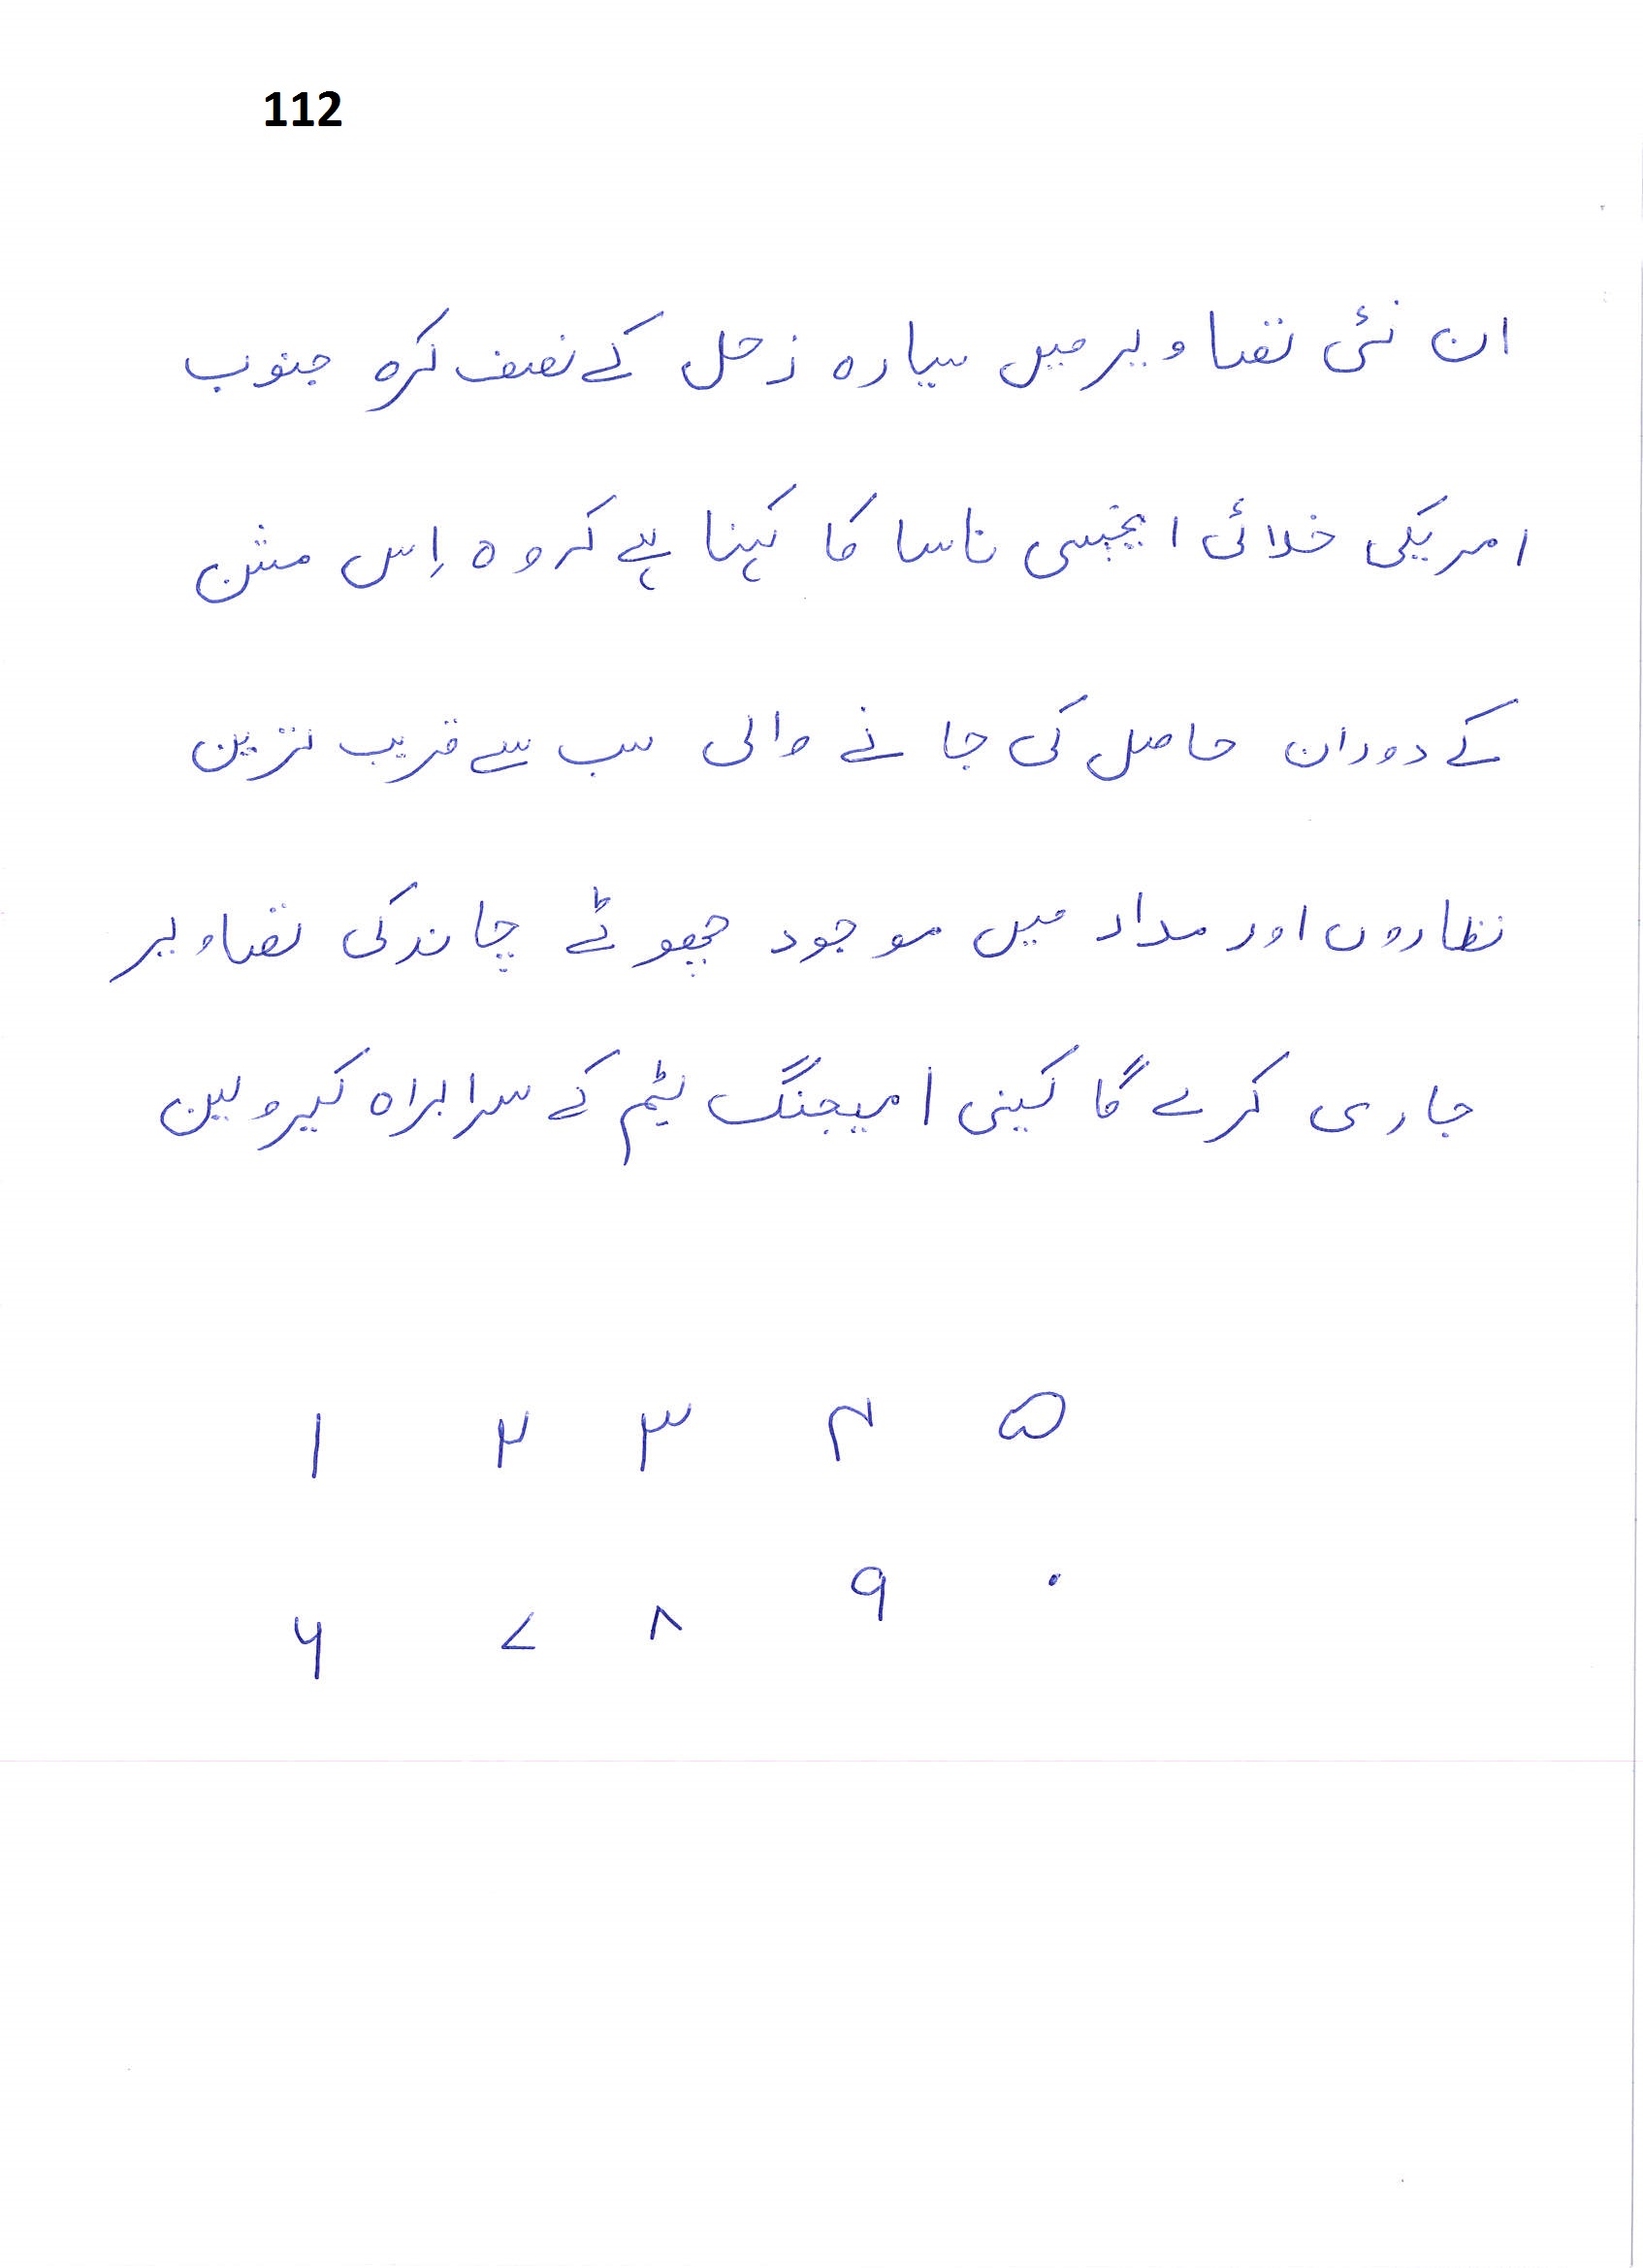 112
ان نئی تصاویر میں سیارہ زحل کے نصف کرہ جنوب
امریکی خلائی ایجنسی ناسا کا کہنا ہے کہ وہ اِس مشن
کے دوران حاصل کی جانے والی سب سے قریب ترین
نظاروں اور مداد میں موجود چھوٹے چاند کی تصاویر
جاری کرے گا کینی امیجنگ ٹیم کے سرابراہ کیرولین
۱ ۲ ۳ ۴ ۵
۶ ۷ ۸ ۹ ۰